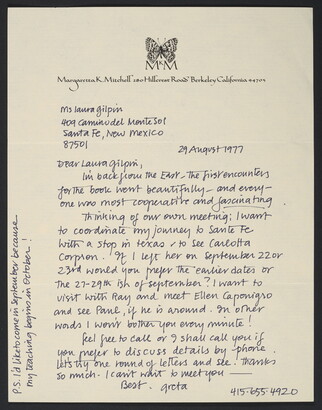 MKM
Margaretta K. Mitchell 280 Hillcrest Road Berkeley California 94705
Ms Laura Gilpin
409 Camino del Monte Sol
Santa Fe, New Mexico
87501
29 August 1977
Dear Laura Gilpin,
I'm back from the East - the first encounters
for the book went beautifully - and every-
one was most cooperative and fascinating.
Thinking of our own meeting; I want
to coordinate my journey to Santa Fe
with a stop in Texas to see Carlotta
Corpron. If I left her on September 22 or
23rd would you prefer the earlier dates or
the 27-29th ish of September? I want to
visit with Ray and meet Ellen Caponigro
and see Paul, if he is around. In other
words I won't bother you every minute!
Feel free to call or I shall call you if
you prefer to discuss details by phone.
Let's try one round of letters and see. Thanks
so much - I can't wait to meet you —
Best. Greta
415.655.4920
P.S. I'd like to come in September because
my teaching begins in October!